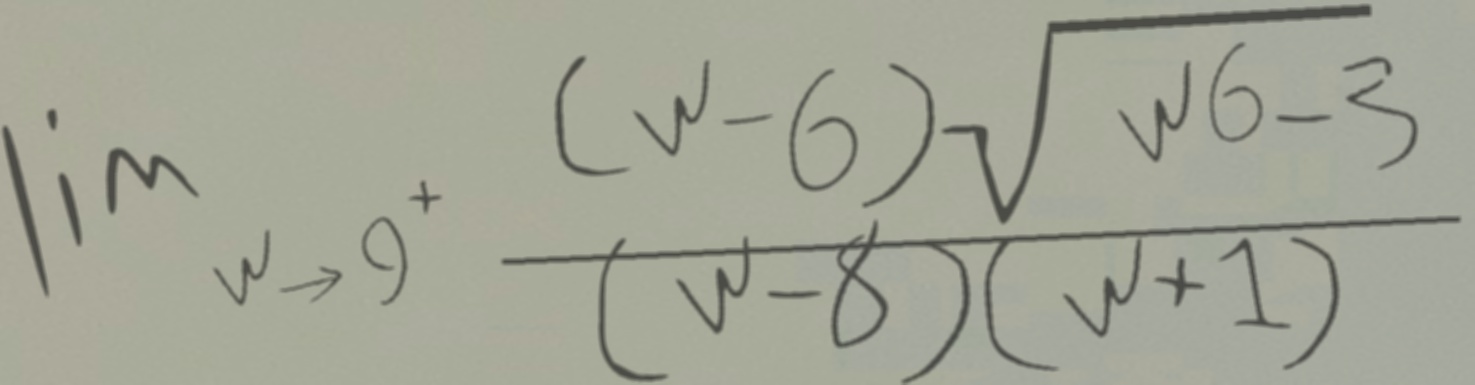 \lim_{w \to 9^+} \frac{(w-6)-\sqrt{w6-3}}{(w-8)(w+1)}